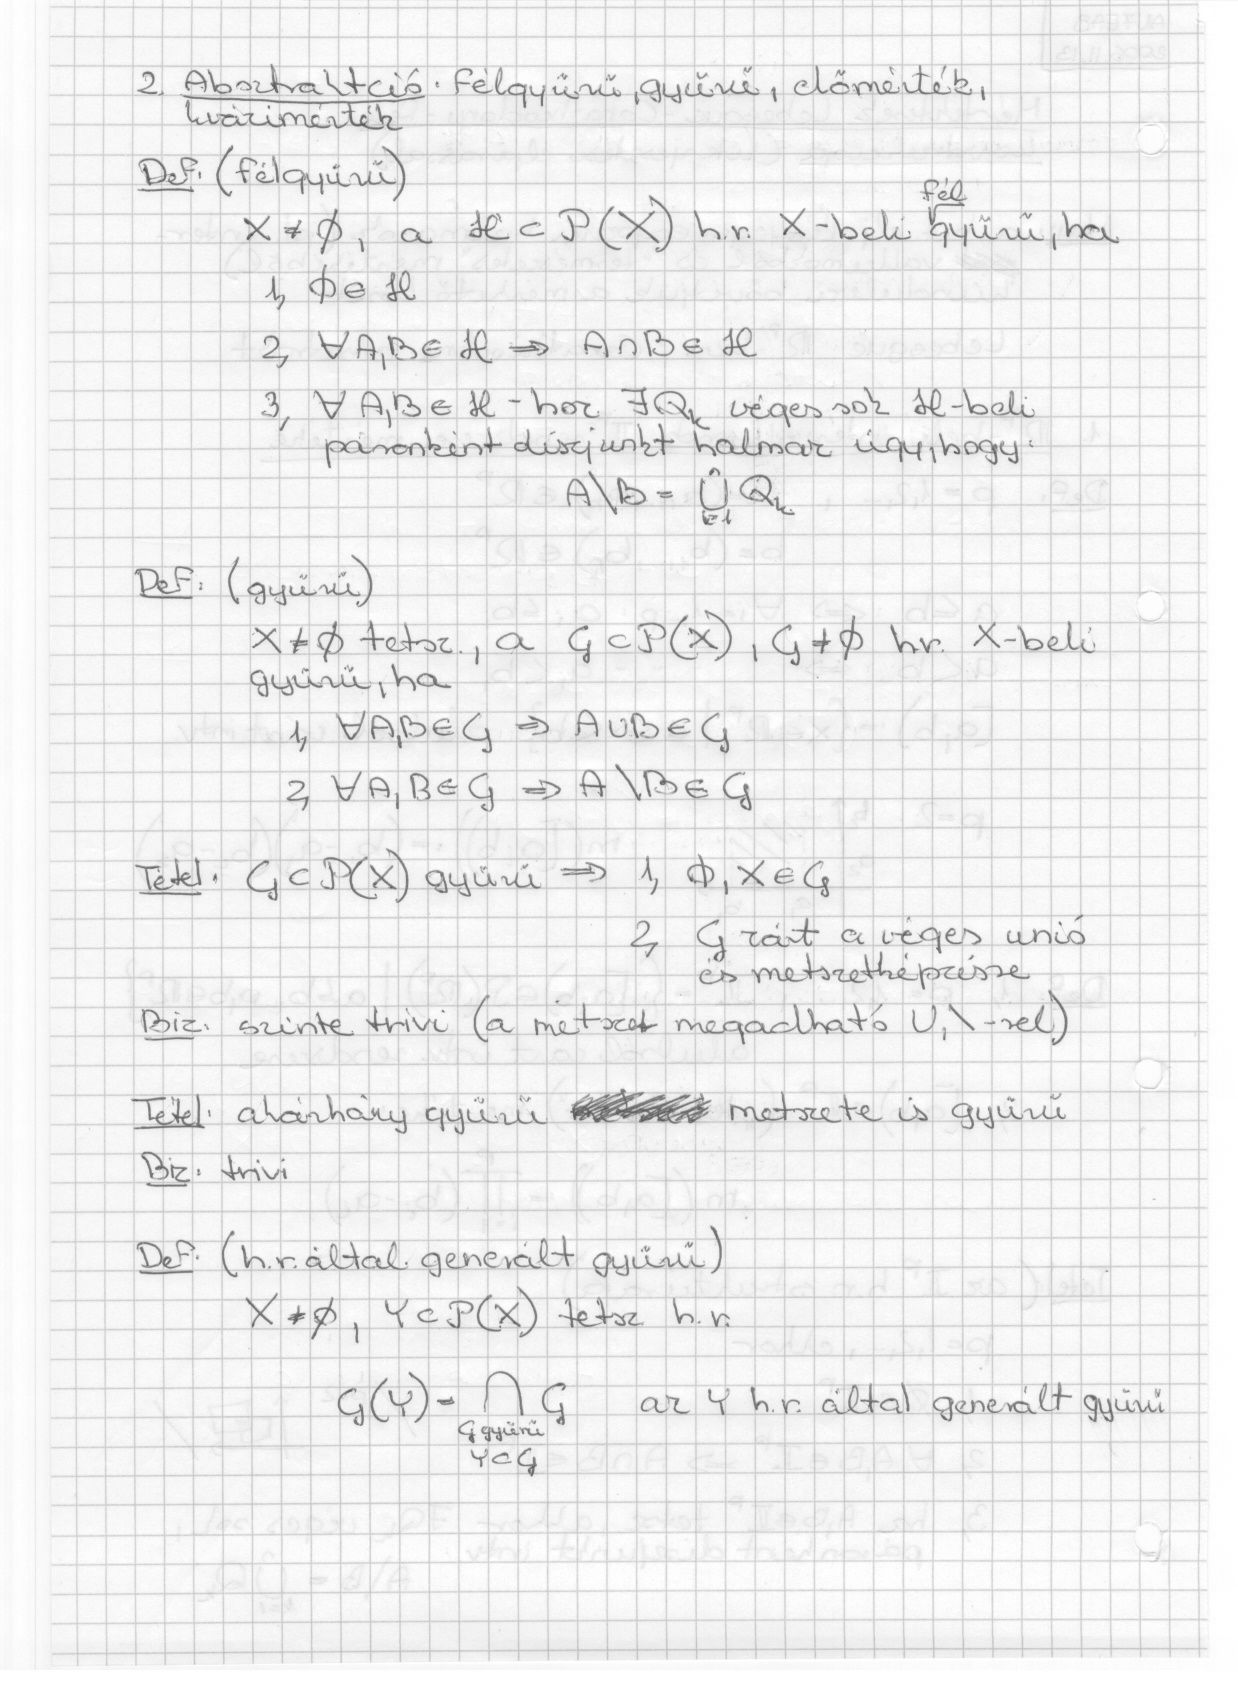 2. Absztraktció. Félgyűrű, gyűrű, előmérték,
kvázimérték
Def. (félgyűrű)
fél
X ≠ ∅, a ℋ ⊂ P(X) h.r. X-beli gyűrű, ha
1, ∅ ∈ ℋ
2, ∀A,B ∈ ℋ ⇒ A∩B ∈ ℋ
3, ∀A,B ∈ ℋ-hoz ∃Qₖ véges sok ℋ-beli
páronként diszjunkt halmaz úgy, hogy:
A\B = ⋃ₖ₌₁ⁿ Qₖ
Def: (gyűrű)
X ≠ ∅ tetsz., a G ⊂ P(X), G ≠ ∅ hr. X-beli
gyűrű, ha
1, ∀A,B ∈ G ⇒ A∪B ∈ G
2, ∀A,B ∈ G ⇒ A\B ∈ G
Tétel. G ⊂ P(X) gyűrű ⇒ 1, ∅, X ∈ G
2, G zárt a véges unió
és metszetképzésre
Biz. szinte trivi (a metszet megadható ∪, \ -rel)
Tétel. akárhány gyűrű metszete is gyűrű
Biz. trivi
Def. (h.r. által generált gyűrű)
X ≠ ∅, Y ⊂ P(X) tetsz h.r.
G(Y) = ⋂ G az Y h.r. által generált gyűrű
G gyűrű
Y ⊂ G